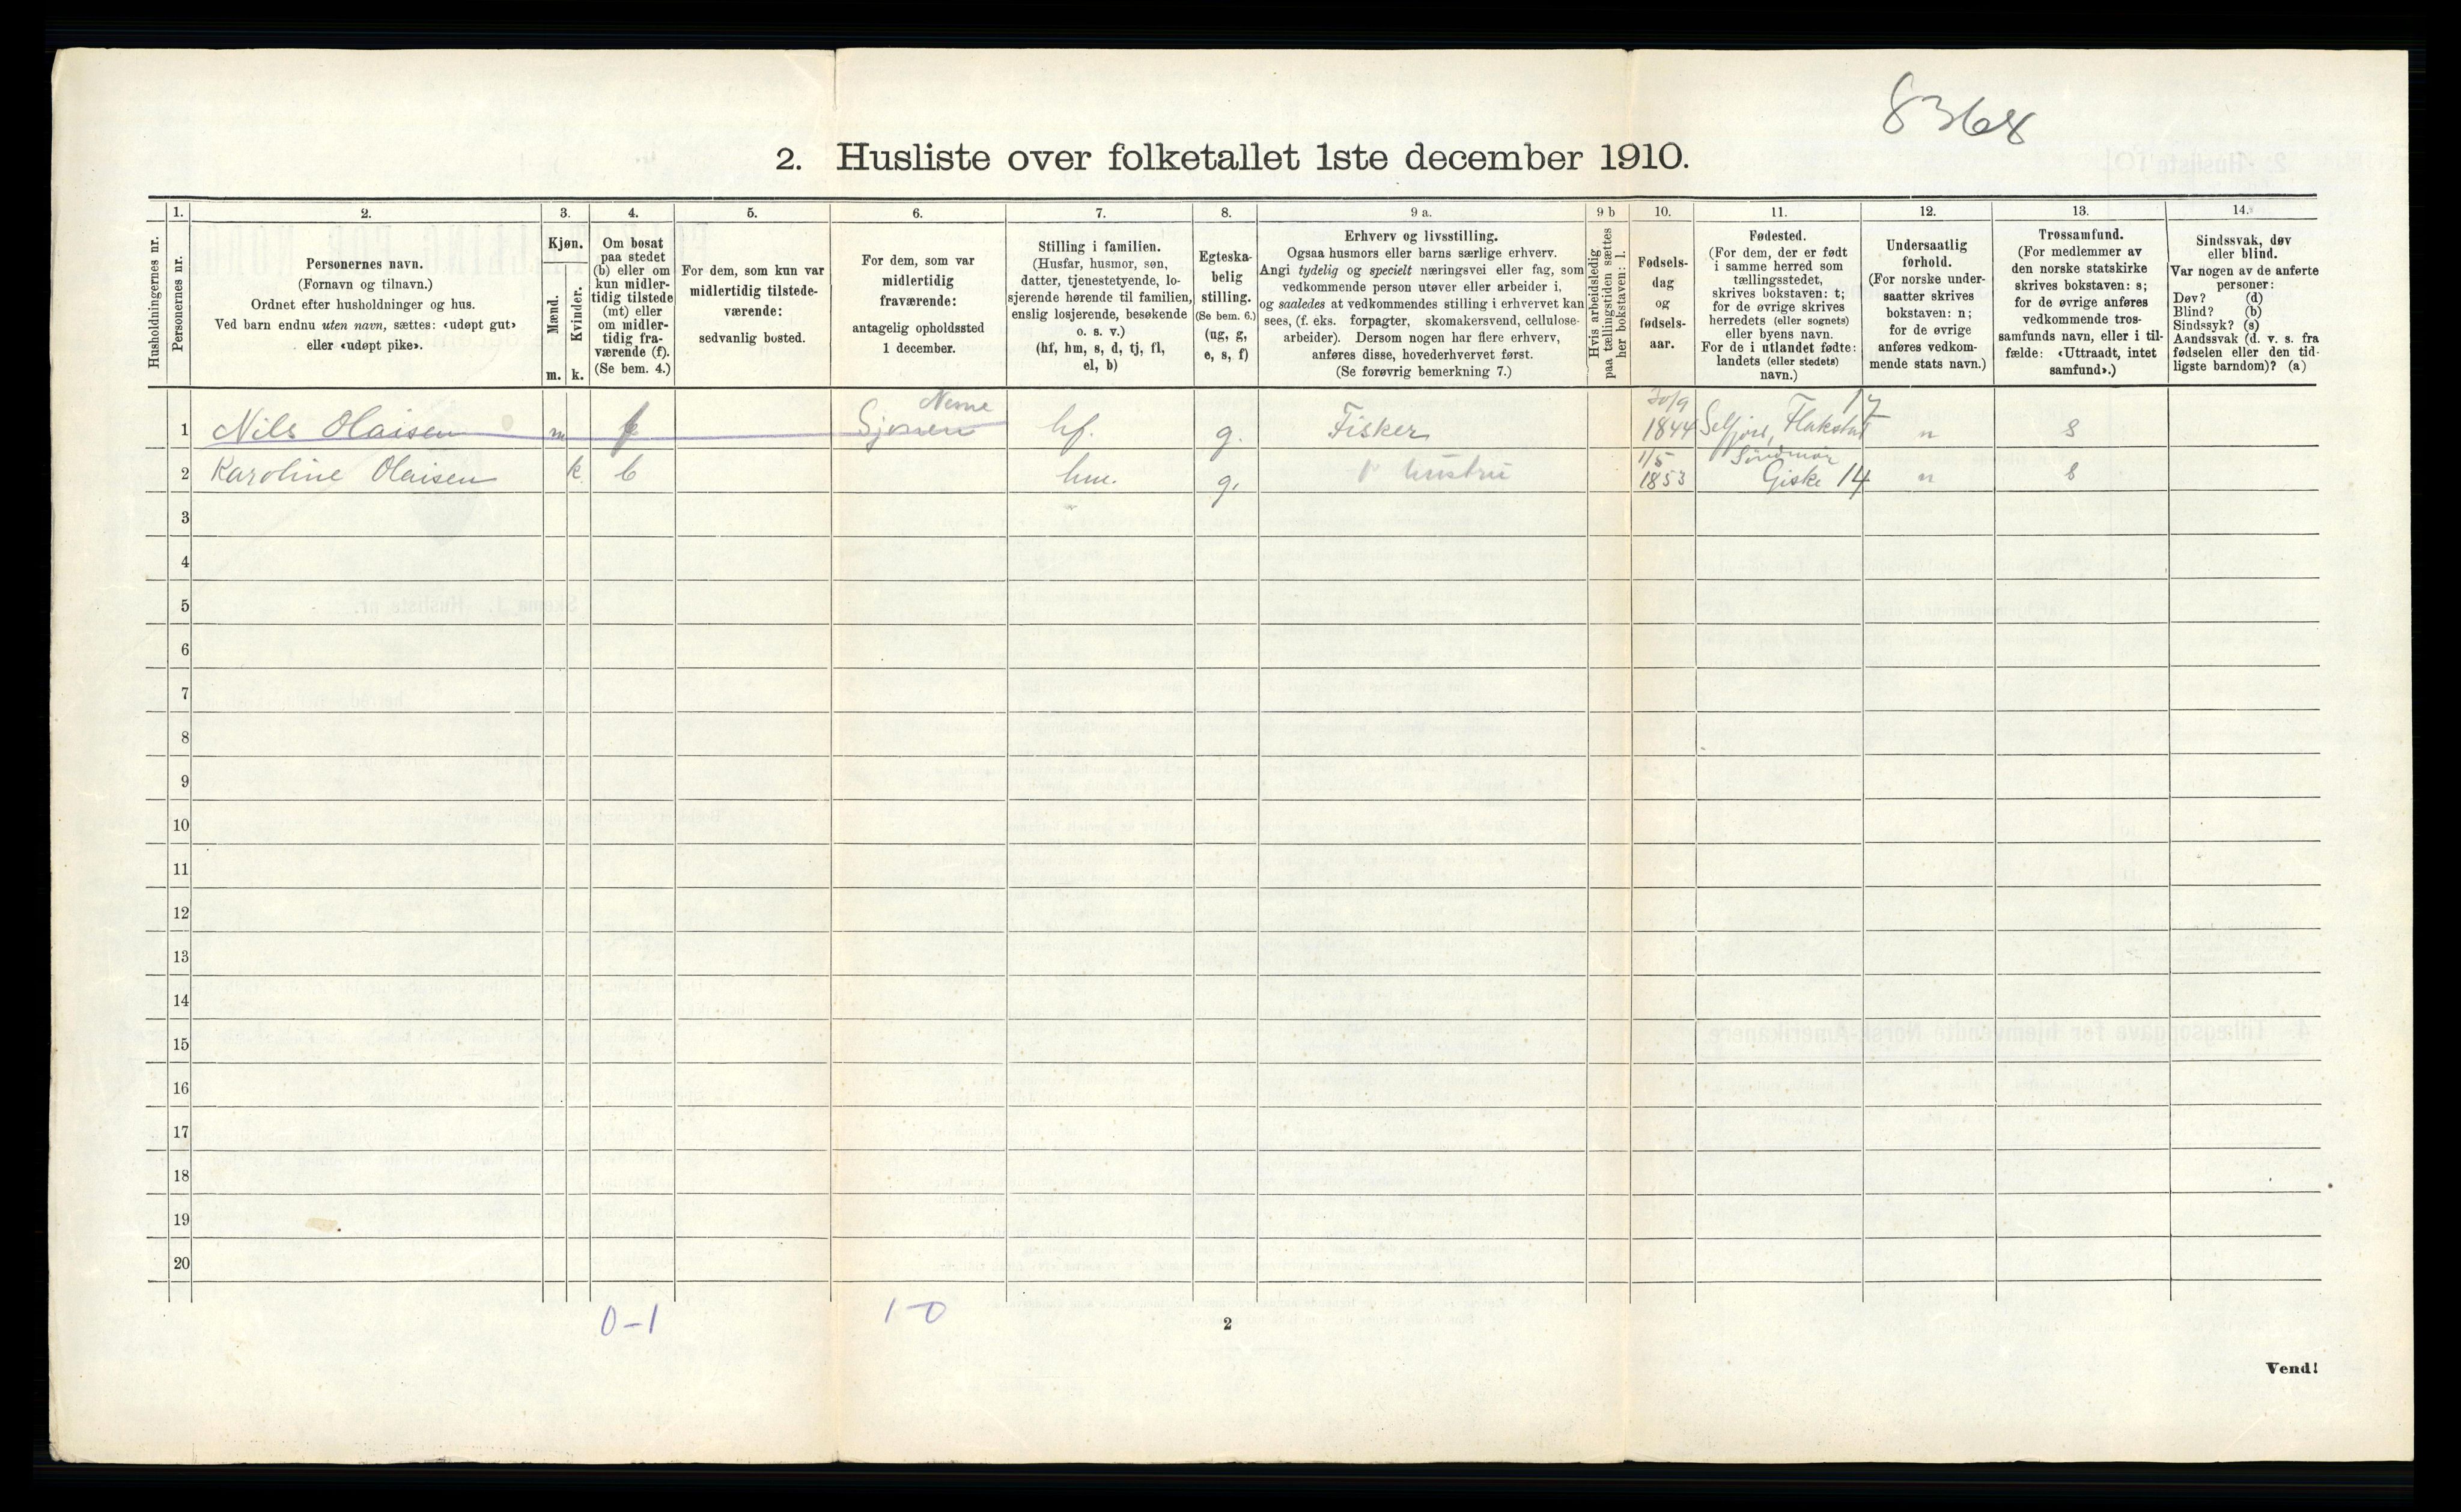 8368
2. Husliste over folketallet 1ste december 1910.
Husholdningernes nr.
1.
Personernes nr.
2.
Personernes navn.
(Fornavn og tilnavn.)
Ordnet efter husholdninger og hus.
Ved barn endnu uten navn, sættes: «udøpt gut»
eller «udøpt pike».
3.
Kjøn.
Mænd.
m.
Kvinder.
k.
4.
Om bosat
paa stedet
(b) eller om
kun midler-
tidig tilstede
(mt) eller
om midler-
tidig fra-
værende (f).
(Se bem. 4.)
5.
For dem, som kun var
midlertidig tilstede-
værende:
sedvanlig bosted.
6.
For dem, som var
midlertidig
fraværende:
antagelig opholdssted
1 december.
7.
Stilling i familien.
(Husfar, husmor, søn,
datter, tjenestetyende, lo-
sjerende hørende til familien,
enslig losjerende, besøkende
o. s. v.)
(hf, hm, s, d, tj, fl,
el, b)
8.
Egteska-
belig
stilling.
(Se bem. 6.)
(ug, g,
e, s, f)
9 a.
Erhverv og livsstilling.
Ogsaa husmors eller barns særlige erhverv.
Angi tydelig og specielt næringsvei eller fag, som
vedkommende person utøver eller arbeider i,
og saaledes at vedkommendes stilling i erhvervet kan
sees, (f. eks. forpagter, skomakersvend, cellulose-
arbeider). Dersom nogen har flere erhverv,
anføres disse, hovederhvervet først.
(Se forøvrig bemerkning 7.)
9 b
Hvis arbeidsledig
paa tællingstiden sættes
her bokstaven: l.
10.
Fødsels-
dag
og
fødsels-
aar.
11.
Fødested.
(For dem, der er født
i samme herred som
tællingsstedet,
skrives bokstaven: t;
for de øvrige skrives
herredets (eller sognets)
eller byens navn.
For de i utlandet fødte:
landets (eller stedets)
navn.)
12.
Undersaatlig
forhold.
(For norske under-
saatter skrives
bokstaven: n;
for de øvrige
anføres vedkom-
mende stats navn.)
13.
Trossamfund.
(For medlemmer av
den norske statskirke
skrives bokstaven: s;
for de øvrige anføres
vedkommende tros-
samfunds navn, eller i til-
fælde: «Uttraadt, intet
samfund».)
14.
Sindssvak, døv
eller blind.
Var nogen av de anførte
personer:
Døv? (d)
Blind? (b)
Sindssyk? (s)
Aandssvak (d. v. s. fra
fødselen eller den tid-
ligste barndom)? (a)
1 Nils Olaisen m f Sjonen Nesne hf. g. Fisker 20/9 1844 Flakstad 17 n s
2 Karoline Olaisen k b hm. g. hustru 1/5 1853 Søndmør Giske 14 n s
3
4
5
6
7
8
9
10
11
12
13
14
15
16
17
18
19
20
0-1 1-0
2
Vend!